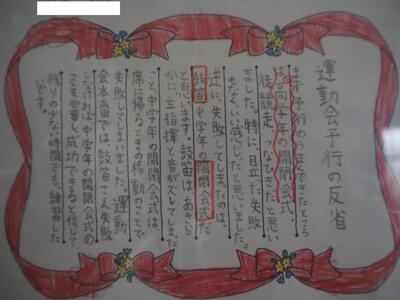 運動会予行の反省
まず、予行のうまくできたところ
は、高学年の開閉会式、
徒競走、なわひきだと思い
ました。特に、目立った失敗
もなく、いい感じだったと思いました。
逆に、失敗してしまったのは、
鼓笛、中学年の開閉会式だ
と思います。鼓笛は、あきら
かに、主指揮と音がズレてしまった
こと、中学年の開閉会式は、
席に帰るときの移動のことで
失敗してしまいました。運動
会本番では、鼓笛さえ失敗
しなければ、中学年の開閉会式の
ことを学習し、成功できると信じて、
残りの少ない時間でも、練習した
いです。